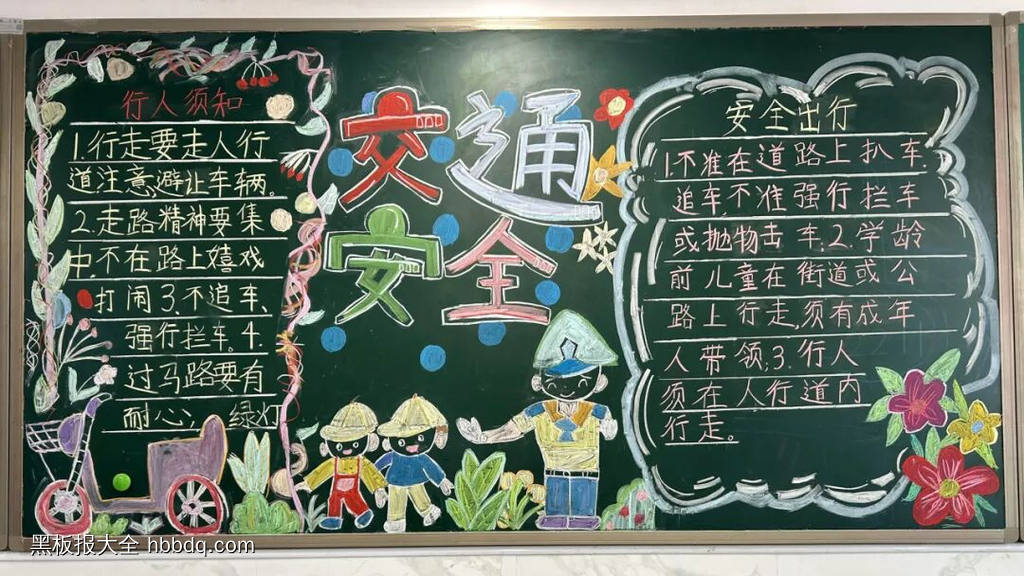 行人须知
1.行走要走人行
道注意,避让车辆。
2.走路精神要集
中,不在路上嬉戏
打闹3.不追车、
强行拦车。4.
过马路要有
耐心; 绿灯
交通
安全
安全出行
1.不准在道路上扒车、
追车,不准强行拦车
或抛物击车;2.学龄
前儿童在街道或公
路上行走,须有成年
人带领;3.行人
须在人行道内
行走。
黑板报大全 hbbdq.com